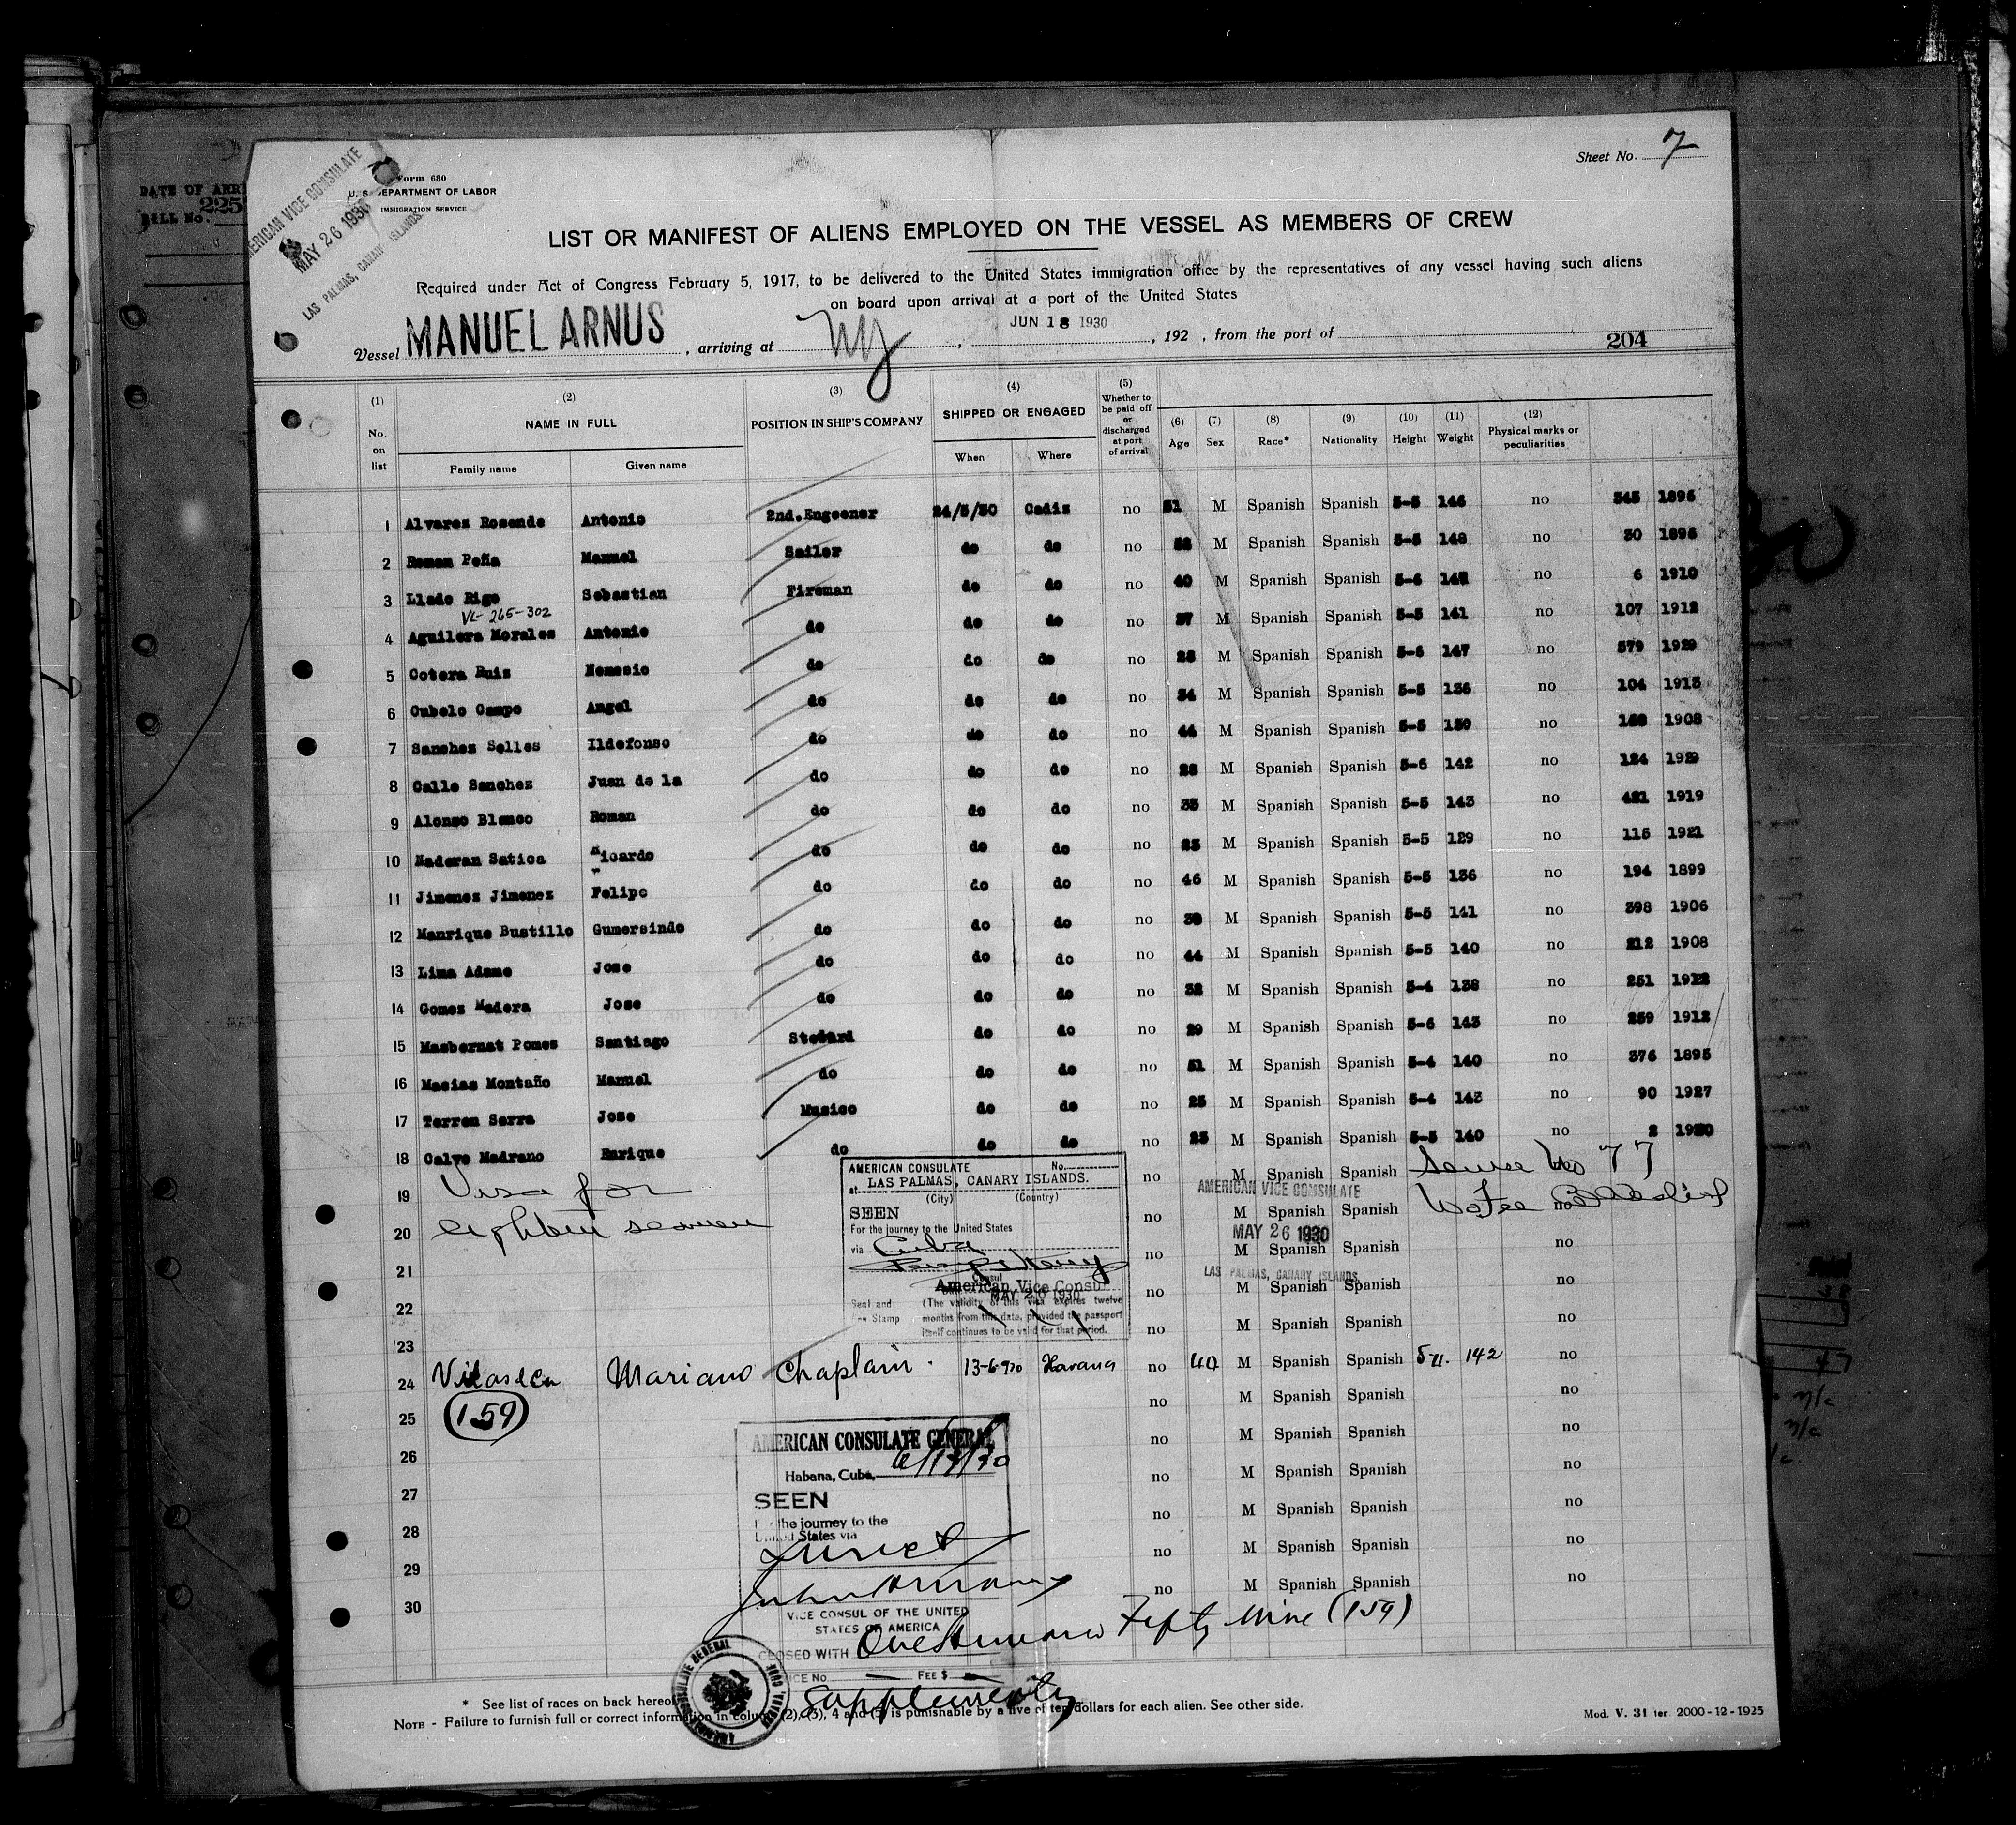 DATE OF ARR
BILL No. 225
Sheet No. 7
AMERICAN VICE CONSULATE
MAY 26 1930
LAS PALMAS, CANARY ISLANDS
Form 680
U. S. DEPARTMENT OF LABOR
IMMIGRATION SERVICE
LIST OR MANIFEST OF ALIENS EMPLOYED ON THE VESSEL AS MEMBERS OF CREW
Required under Act of Congress February 5, 1917, to be delivered to the United States immigration office by the representatives of any vessel having such aliens
on board upon arrival at a port of the United States
Vessel MANUEL ARNUS , arriving at NY , JUN 18 1930 , 192 , from the port of 204
(1) No. on list (2) NAME IN FULL Family name Given name (3) POSITION IN SHIP'S COMPANY (4) SHIPPED OR ENGAGED When Where (5) Whether to be paid off or discharged at port of arrival (6) Age (7) Sex (8) Race* (9) Nationality (10) Height (11) Weight (12) Physical marks or peculiarities
1 Alvarez Rosende Antonio 2nd.Engeener 24/5/30 Cadiz no 51 M Spanish Spanish 5-5 146 no 345 1896
2 Roman Peña Manuel Sailer do do no M Spanish Spanish 5-5 148 no 30 1896
3 Llado Rigo Sebastian Fireman do do no 40 M Spanish Spanish 5-6 no 6 1910
VL-265-302
4 Aguilera Morales Antonio do do do no 37 M Spanish Spanish 5-5 141 no 107 1912
5 Cotera Ruiz Nemesio do do do no 28 M Spanish Spanish 5-6 147 no 579 1929
6 Cubelo Campo Angel do do do no 34 M Spanish Spanish 5-5 136 no 104 1913
7 Sanchez Selles Ildefonso do do do no 44 M Spanish Spanish 5-5 no 1908
8 Calle Sanchez Juan de la do do do no 28 M Spanish Spanish 5-6 142 no 124 1929
9 Alonso Blanco Roman do do do no 35 M Spanish Spanish 5-5 143 no 421 1919
10 Naderan Satica Ricardo do do do no 23 M Spanish Spanish 5-5 129 no 115 1921
11 Jimenez Jimenez Felipe do do do no 46 M Spanish Spanish 5-5 136 no 194 1899
12 Manrique Bustillo Gumersindo do do do no 39 M Spanish Spanish 5-5 141 no 398 1906
13 Lima Adame Jose do do do no 44 M Spanish Spanish 5-5 140 no 212 1908
14 Gomez Madera Jose do do do no 32 M Spanish Spanish 5-4 138 no 251 1912
15 Masbernat Pomes Santiago Steward do do no 29 M Spanish Spanish 5-6 143 no 259 1912
16 Macias Montaño Manuel do do do no 51 M Spanish Spanish 5-4 140 no 376 1895
17 Terren Serra Jose Musico do do no 25 M Spanish Spanish 5-4 143 no 90 1927
18 Calvo Madrano Enrique do do do no 23 M Spanish Spanish 5-5 140 no 2 1930
19 Visa for no M Spanish Spanish Service No 77
20 eighteen seamen no M Spanish Spanish No Fee no
21 no M Spanish Spanish no
22 no M Spanish Spanish no
23 no M Spanish Spanish no
AMERICAN CONSULATE No.
at LAS PALMAS, CANARY ISLANDS.
(City) (Country)
SEEN
For the journey to the United States
via Cuba
Consul
American Vice Consul
MAY 26 1930
Seal and Fee Stamp (The validity of this visa expires twelve
months from this date, provided the passport
itself continues to be valid for that period.
AMERICAN VICE CONSULATE
MAY 26 1930
LAS PALMAS, CANARY ISLANDS
24 Vilaseca Mariano Chaplain. 13-6-930 Havana no 40 M Spanish Spanish 142 no
25 (159) no M Spanish Spanish no
26 no M Spanish Spanish no
27 no M Spanish Spanish no
28 no M Spanish Spanish no
29 no M Spanish Spanish no
30 no M Spanish Spanish no
AMERICAN CONSULATE GENERAL
Habana, Cuba, 6/13/30
SEEN
For the journey to the
United States via
Direct
VICE CONSUL OF THE UNITED
STATES OF AMERICA
CLOSED WITH One Hundred Fifty Nine (159)
SERVICE No FEE $
Supplementary
* See list of races on back hereof
NOTE - Failure to furnish full or correct information in columns (2), (3), 4 and (5) is punishable by a five of ten dollars for each alien. See other side.
Mod. V. 31 ter 2000-12-1925